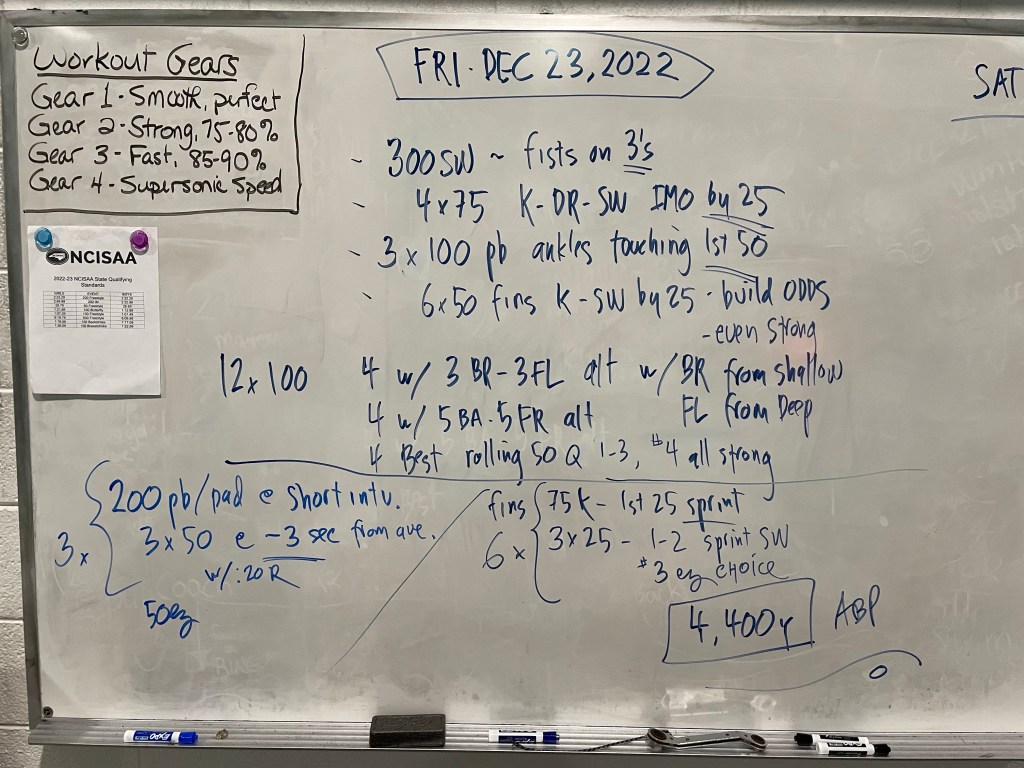 Workout Gears
Gear 1 - Smooth, perfect
Gear 2 - Strong, 75-80%
Gear 3 - Fast, 85-90%
Gear 4 - Supersonic Speed
NCISAA
2022-23 NCISAA State Qualifying
Standards
FRI. DEC 23, 2022
SAT
- 300 SW ~ fists on 3's
- 4x75 K-DR-SW IMO by 25
- 3x100 pb ankles touching 1st 50
- 6x50 fins K-SW by 25 - build ODDS
- even strong
12x100 4 w/ 3 BR-3FL alt w/ BR from shallow
4 w/ 5 BA-5 FR alt FL from Deep
4 Best rolling 50 Q 1-3, #4 all strong
3x 200 pb/pad @ short intv.
3x50 @ -3 sec from ave.
w/ :20 R
50ez
fins 75 K - 1st 25 sprint
6x 3x25 - 1-2 sprint SW
#3 ez choice
4,400y ABP